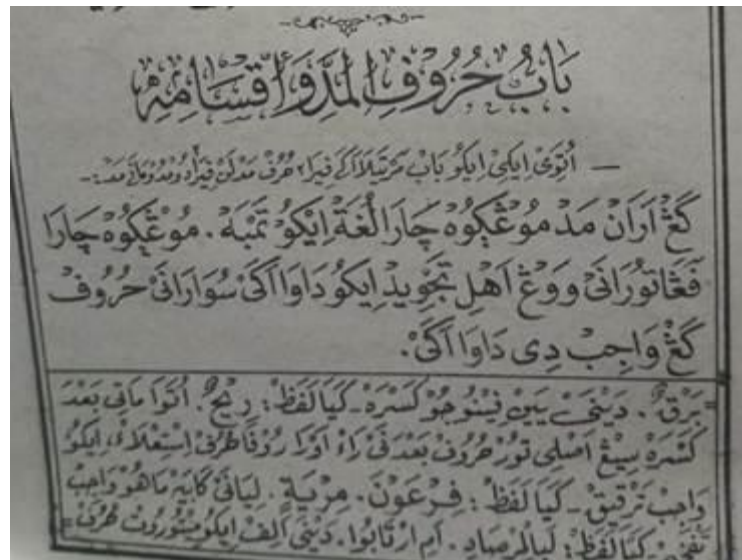 بَابُ حُرُوْفِ الْمَدِّ وَأَقْسَامِهِ
— اُتَوِيْ اِيْكِيْ اِيْكُوْ بَابْ مَرْتَيْلَاأَكَيْ فِيْرَا٢ حُرُفْ مَدْ لَنْ فِيْرَا٢
كَڠْ اَرَانْ مَدْ مُوْڠْكُوْهْ چَارَا لُغَةْ اِيْكُوْ تَمْبَهْ. مُوْڠْكُوْهْ چَارَا
ڤَڠَاتُوْرَانَيْ وَوْڠْ اَهْلِ تَجْوِيْدْ اِيْكُوْ دَاوَا اَكَيْ سُوَارَانَيْ حُرُوْفْ
كَڠْ وَاجِبْ دِى دَاوَا اَكَيْ.
بَرْقٌ. دَيْنَيْ يَيْنْ نُوْجُوْ كَسْرَهْ ـ كَيَا لَفَظْ: رِيْحٌ. اُتَوَا مَاتِى بَعْدَ
كَسْرَهْ سِيْڠْ اَصْلِى تُوْرْ حُرُوْفْ بَعْدَنَيْ رَاءْ اَوْرَا رُوْفَا حُرُفْ اِسْتِعْلَاءْ، اِيْكُوْ
وَاجِبْ تَرْقِيْقْ ـ كَيَا لَفَظْ: فِرْعَوْنَ. مِرْيَةٍ. لِيَانَيْ كَابَيْهْ مَاهُوْ وَاجِبْ
تَفْخِيْمْ كَيَا لَفَظْ: لَبِالْمِرْصَادِ. اَمِ ارْتَابُوْا. دَيْنَيْ اَلِفْ اِيْكُوْ حُرُفْ